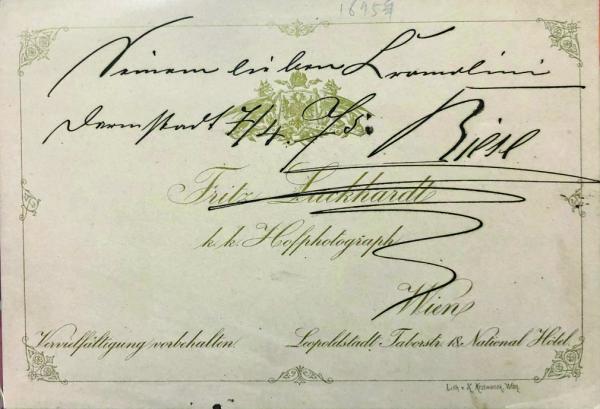 1695
Seinem lieben Cramolini
Darmstadt 7/4. 75. Riese
Fritz Luckhardt
k. k. Hofphotograph
Wien
Vervielfältigung vorbehalten.
Leopoldstadt, Taborstr. 18. National Hôtel.
Lith. v. K. Krziwanek, Wien